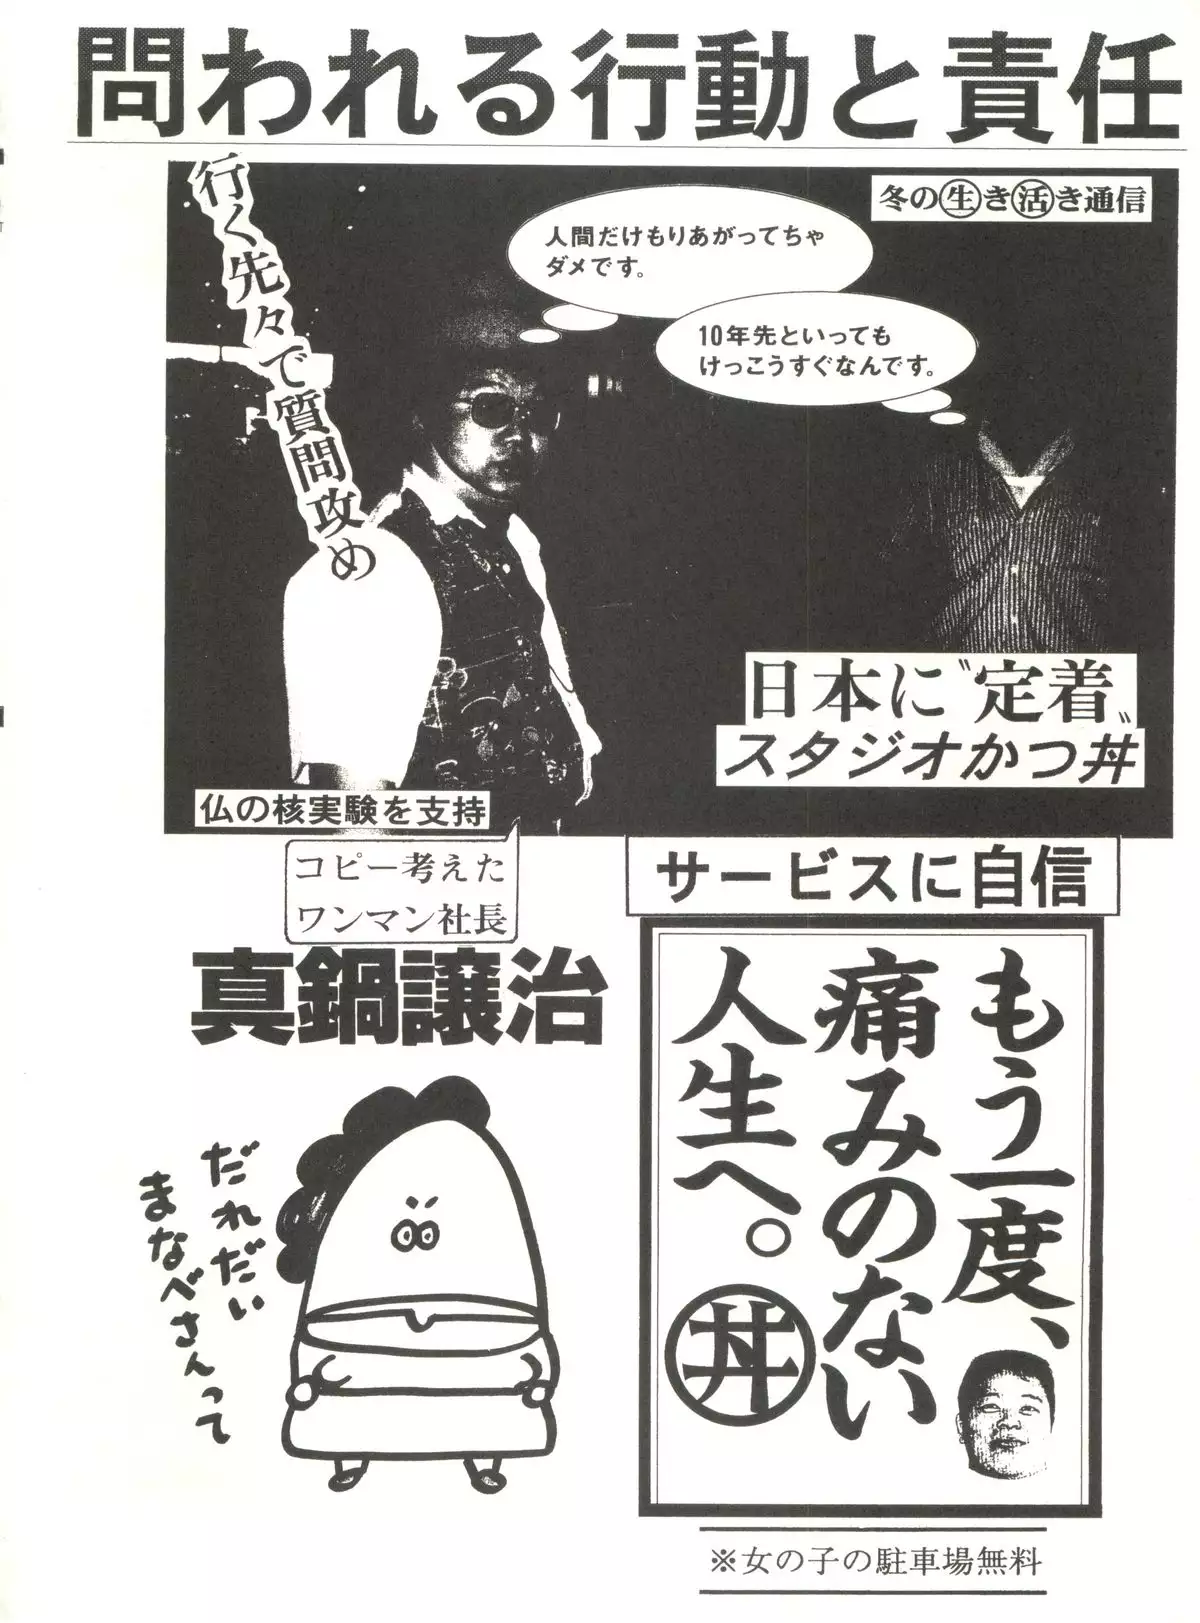 問われる行動と責任
冬の生き活き通信
行く先々で質問攻め
人間だけもりあがってちゃ
ダメです。
10年先といっても
けっこうすぐなんです。
日本に〝定着〟
スタジオかつ丼
仏の核実験を支持
コピー考えた
ワンマン社長
真鍋譲治
サービスに自信
もう一度、
痛みのない
人生へ。
丼
だれだい
まなべさんって
※女の子の駐車場無料